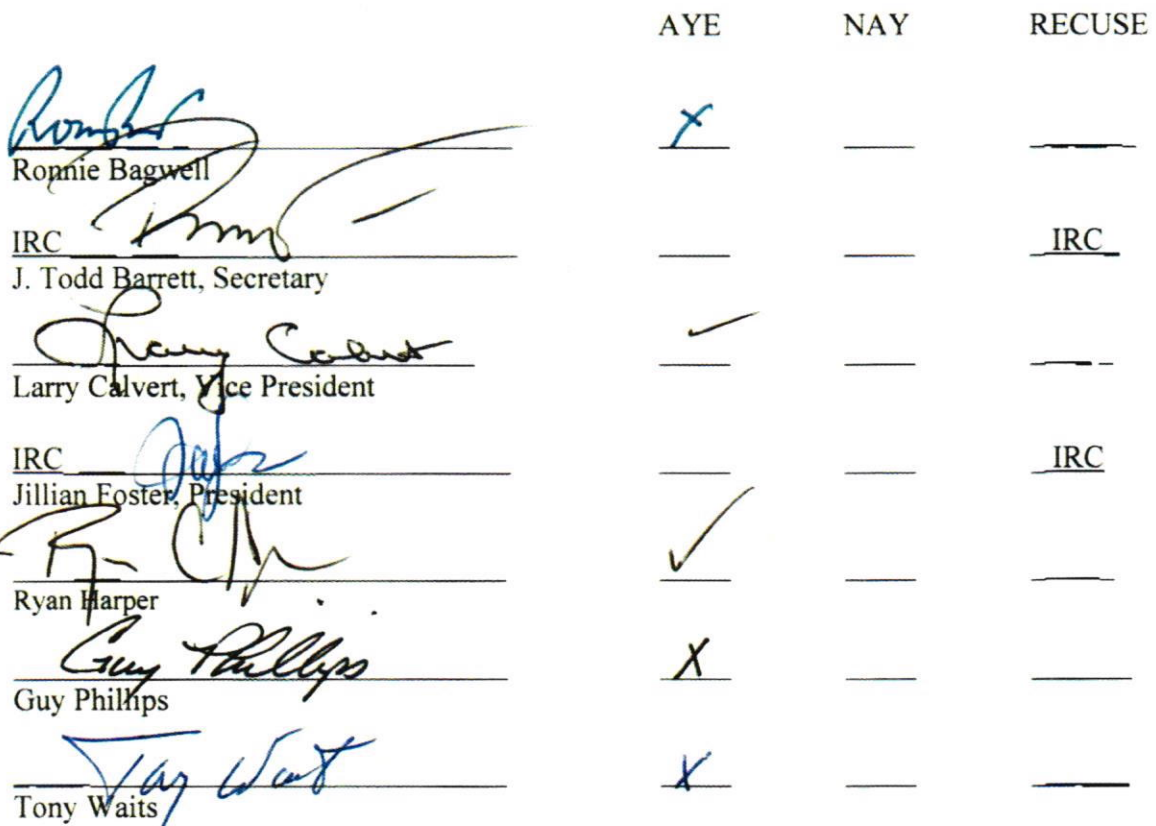 AYE NAY RECUSE
X
Ronnie Bagwell
IRC IRC
J. Todd Barrett, Secretary
Larry Calvert ✓
Larry Calvert, Vice President
IRC IRC
Jillian Foster, President
✓
Ryan Harper
Guy Phillips X
Guy Phillips
Tony Wait X
Tony Waits